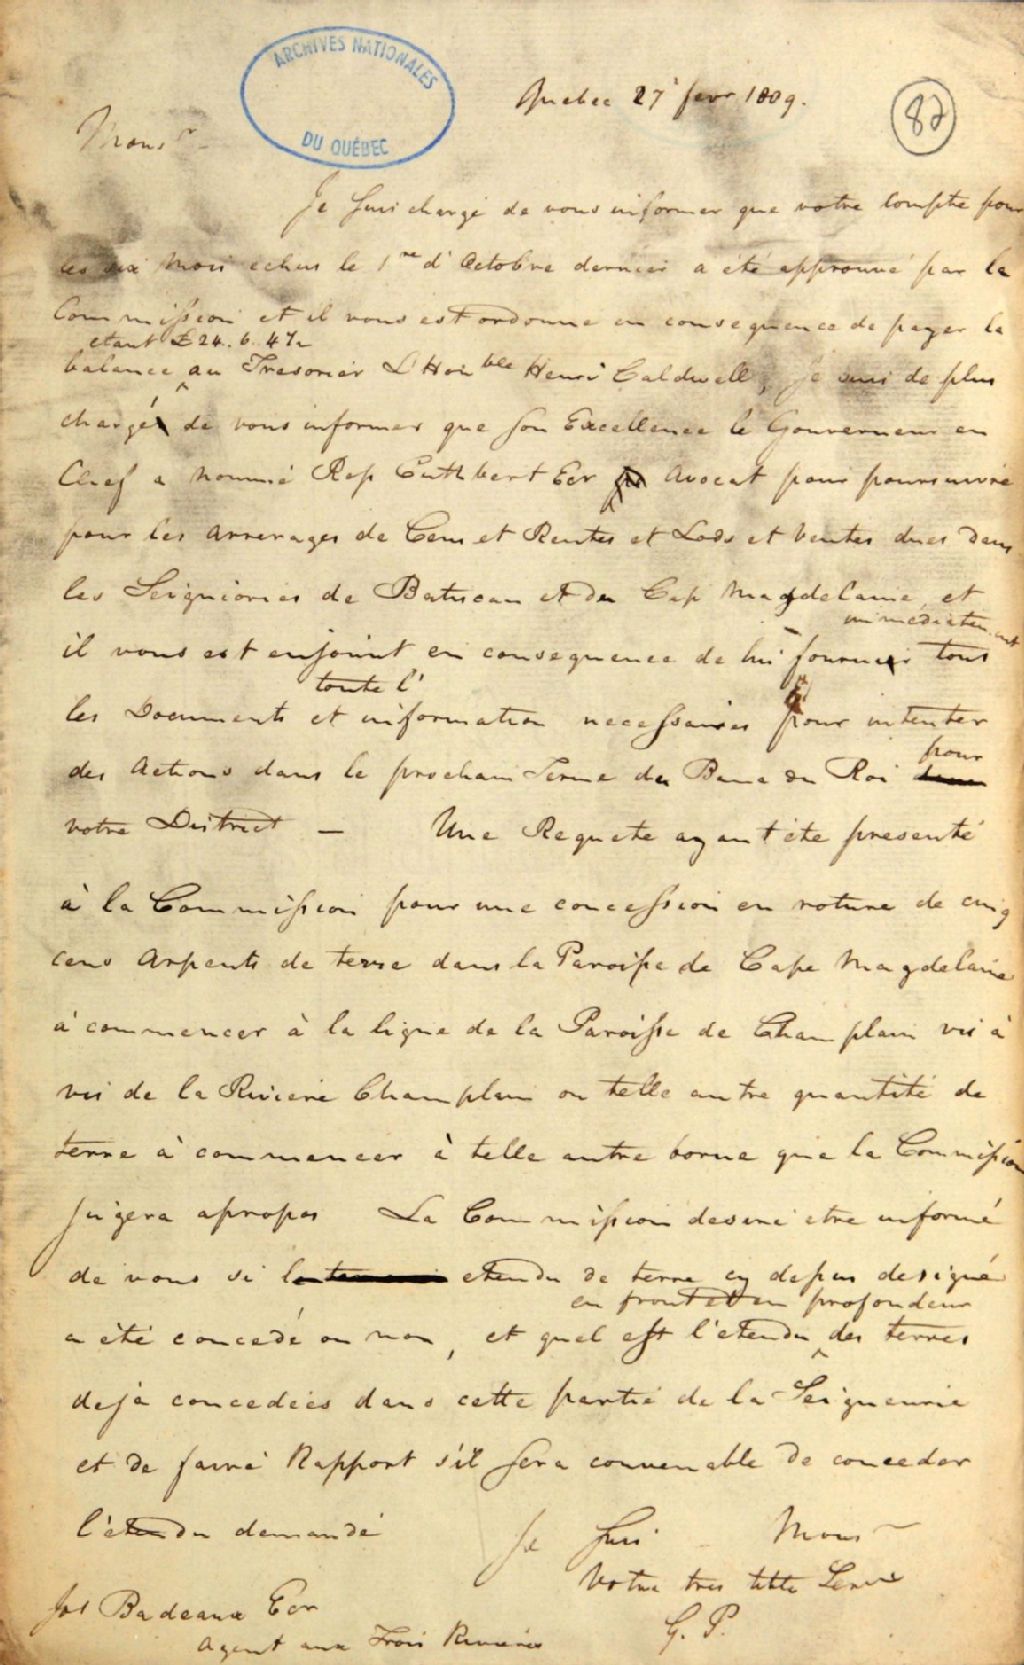 ARCHIVES NATIONALES
DU QUÉBEC
Quebec 27 fevr 1809.
82
Monsr
Je suis chargé de vous informer que votre compte pour
les six Mois echus le 1re d'Octobre dernier a été approuvé par la
Commission et il vous est ordonné en consequence de payer la
etant £24.6.4½
balance au Tresorier L'Honble Henri Caldwell, je suis de plus
chargé de vous informer que son Excellence le Gouverneur en
Chef a nommé Ross Cuthbert Ecr Avocat pour poursuivre
pour les arrerages de Cens et Rentes et Lods et Ventes dues dans
les Seigniories de Batiscan et du Cap Magdelaine, et
immediatement
il vous est enjoint en consequence de lui fournir tous
toute l'
les Documents et information necessaires pour intenter
des Actions dans le prochain Terme du Banc du Roi
pour
votre District — Une Requete ayant été presenté
à la Commission pour une concession en roture de cinq
cens Arpents de terre dans la Paroisse de Cape Magdelaine
a commencer à la ligne de la Paroisse de Champlain vis à
vis de la Riviere Champlain ou telle autre quantité de
terre à commencer à telle autre borne que la Commission
jugera apropos La Commission desire etre informé
de vous si etendu de terre cy dessus designé
en front et en profondeur
a été concedé ou non, et quel est l'etendu des terres
deja concedées dans cette partie de la Seigneurie
et de faire Rapport s'il sera convenable de conceder
l'etendu demandé
Je suis Monsr
Votre tres Servr
G. P.
Jos Badeaux Ecr
Agent aux Trois Rivieres